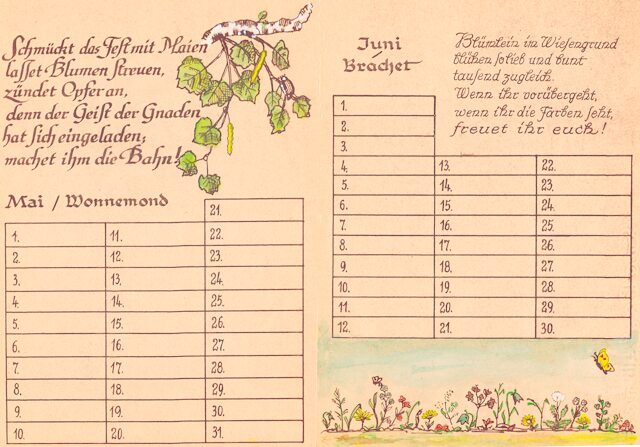 Schmückt das Fest mit Maien
lasset Blumen streuen,
zündet Opfer an,
denn der Geist der Gnaden
hat sich eingeladen;
machet ihm die Bahn!
Mai / Wonnemond
1.
2.
3.
4.
5.
6.
7.
8.
9.
10.
11.
12.
13.
14.
15.
16.
17.
18.
19.
20.
21.
22.
23.
24.
25.
26.
27.
28.
29.
30.
31.
Juni
Brachet
Blümlein im Wiesengrund
blühen so lieb und bunt
tausend zugleich.
Wenn ihr vorübergeht,
wenn ihr die Farben seht,
freuet ihr euch!
1.
2.
3.
4.
5.
6.
7.
8.
9.
10.
11.
12.
13.
14.
15.
16.
17.
18.
19.
20.
21.
22.
23.
24.
25.
26.
27.
28.
29.
30.